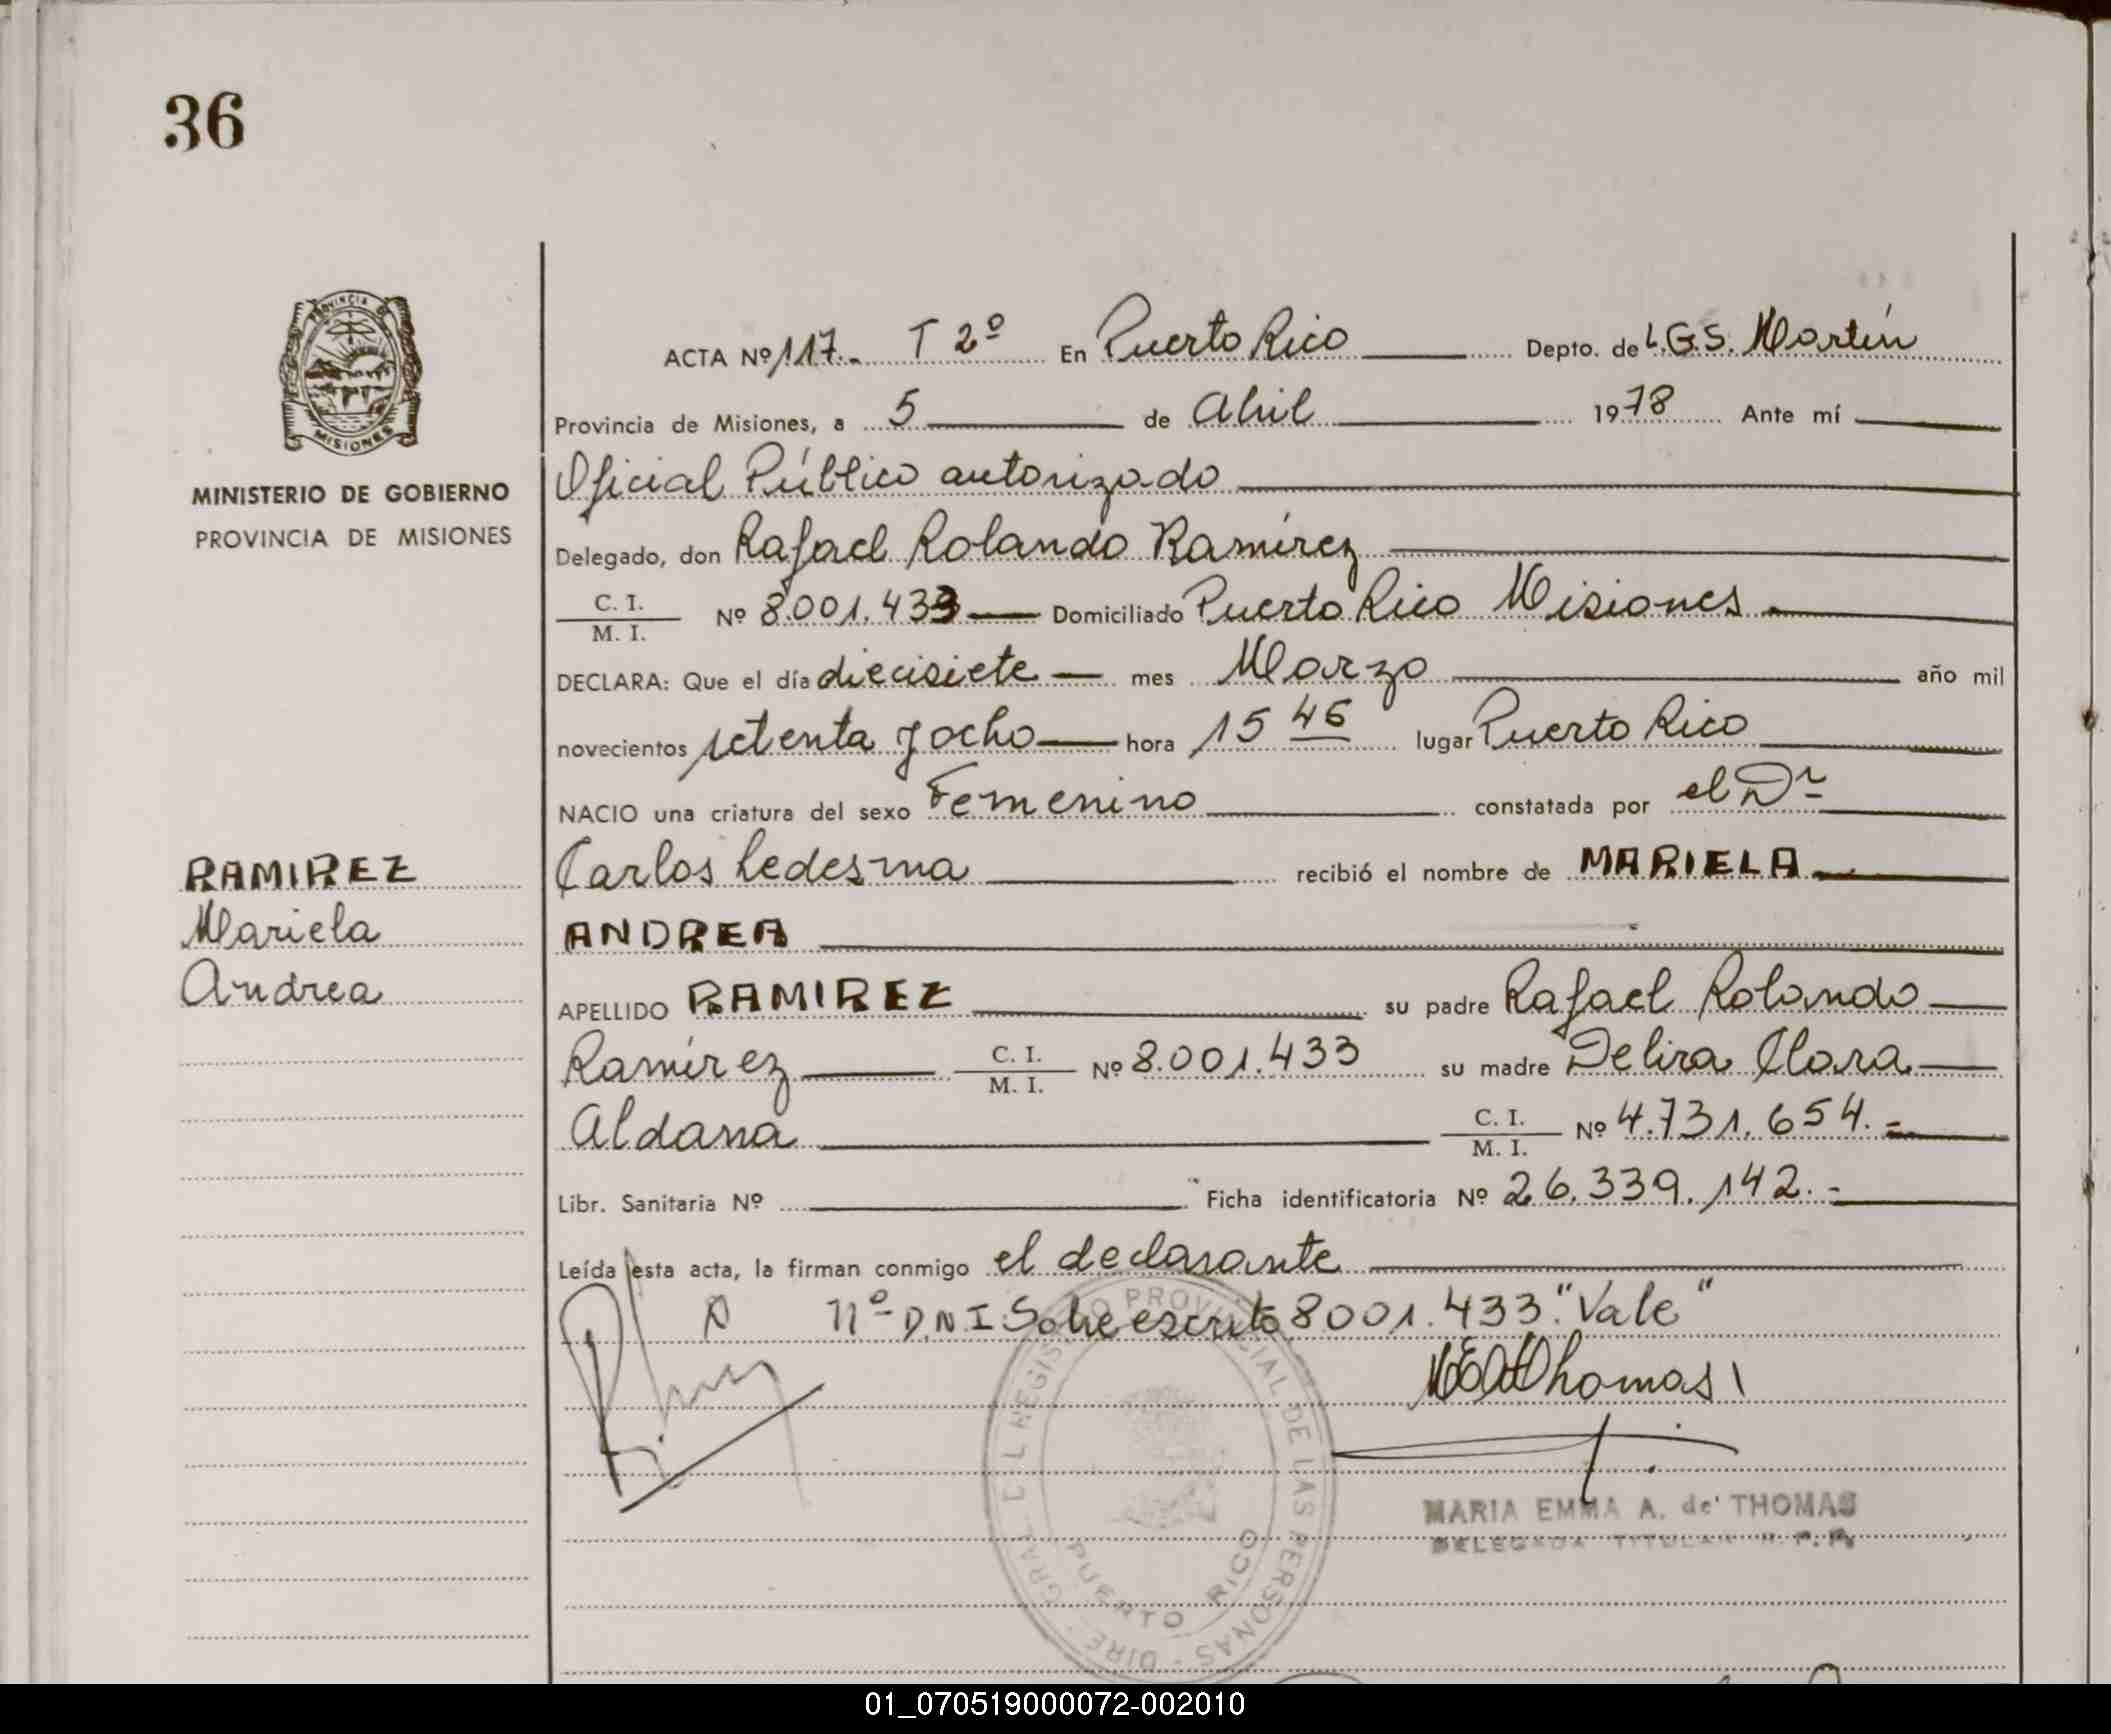 36
PROVINCIA DE
MISIONES
MINISTERIO DE GOBIERNO
PROVINCIA DE MISIONES
RAMIREZ
Mariela
Andrea
ACTA Nº 117.- T 2º En Puerto Rico Depto. de L.G.S. Martín
Provincia de Misiones, a 5 de Abril 1978 Ante mí
Oficial Público autorizado
Delegado, don Rafael Rolando Ramírez
C. I.
M. I. Nº 8.001.433 Domiciliado Puerto Rico Misiones
DECLARA: Que el día diecisiete mes Marzo año mil
novecientos setenta y ocho hora 15 45 lugar Puerto Rico
NACIO una criatura del sexo Femenino constatada por el Dr
Carlos Ledesma recibió el nombre de MARIELA
ANDREA
APELLIDO RAMIREZ su padre Rafael Rolando
Ramírez C. I. M. I. Nº 8.001.433 su madre Delira Clara
Aldana C. I. M. I. Nº 4.731.654.=
Libr. Sanitaria Nº Ficha identificatoria Nº 26.339.142.-
Leída esta acta, la firman conmigo el declarante
nº D.N.I Sobre escrito 8001.433."Vale"
MEAdThomas
MARIA EMMA A. de THOMAS
DELEGADA TITULAR R. P. P.
DIRE. GRAL. DEL REGISTRO PROVINCIAL DE LAS PERSONAS -
PUERTO RICO
01_070519000072-002010